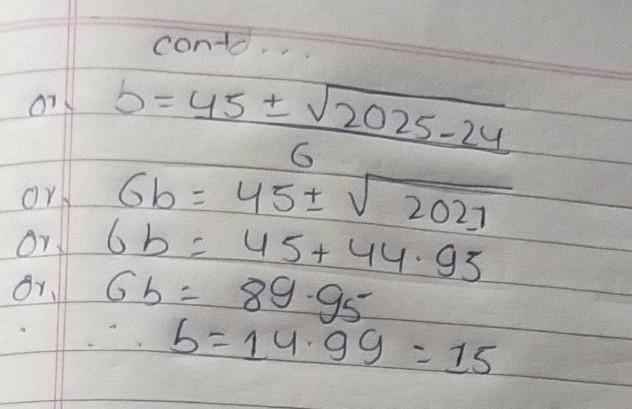 contd...
or, b = 45 ± √2025-24 / 6
or, 6b = 45 ± √ 2021
or, 6b = 45 + 44.95
or, 6b = 89.95
∴ b = 14.99 = 15